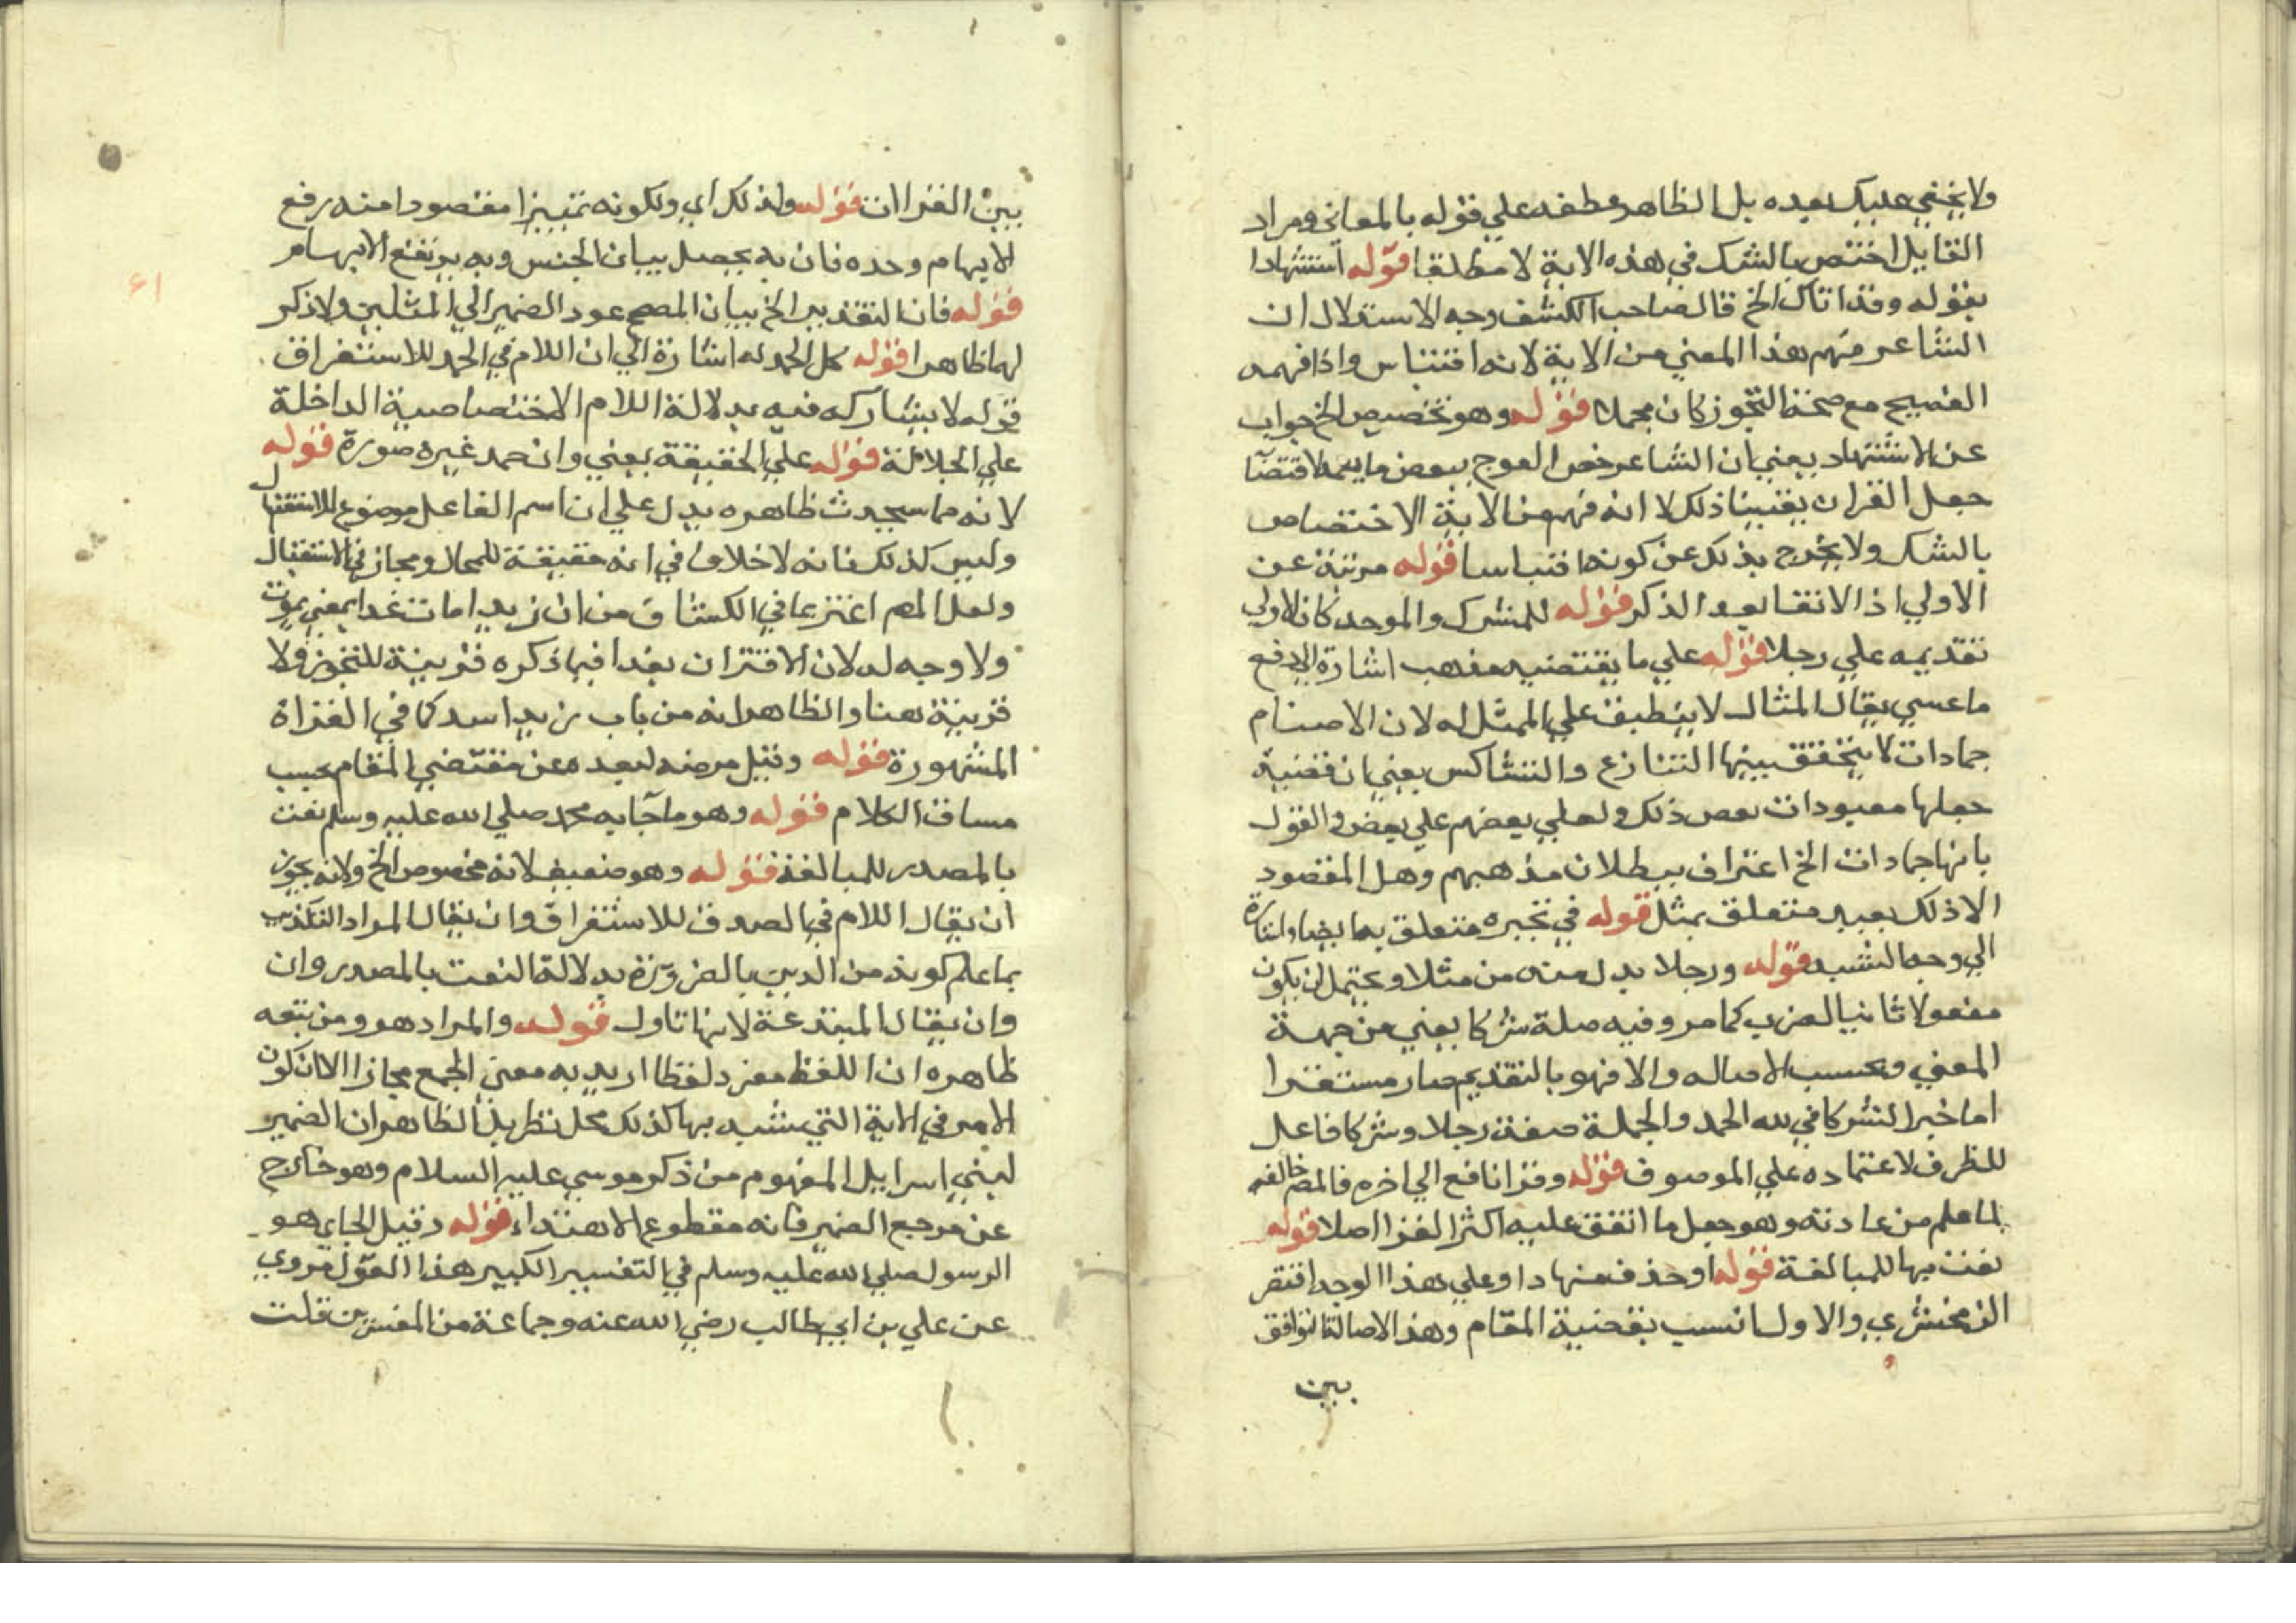 ولا يخفي عليك بعده بل الظاهر عطفه علي قوله بالمعاني ومراد
القايل اختص بالشك في هذه الاية لا مطلقا قوله استشهادا
بقوله وقد اتاك الخ قال صاحب الكشف وجه الاستدلال ان
الشاعر فهم هذا المعني من الاية لانه اقتباس واذا فهمه
الفصيح مع صحة التجوز كان محملا قوله وهو تخصيص الخ جواب
عن الاستشهاد يعني ان الشاعر خص العوج ببعض ما يعمه لاقتضآ
جعل القران يقينا ذلك لا انه فهم من الاية الاختصاص
بالشك ولا يخرج بذلك عن كونه اقتباسا قوله مرتبة عن
الاولي اذ الاتقا بعد الذكر قوله للمشرك والموحد كان الاولي
تقديمه علي رجلا قوله علي ما يقتضيه مذهبه اشارة الي دفع
ما عسي يقال المثال لا ينطبق علي الممثل له لان الاصنام
جمادات لا يتحقق بينها التنازع والتشاكس يعني ان قضية
جعلها معبودات بعض ذلك ولعلي بعضهم علي بعض والقول
بانها جمادات الخ اعتراف ببطلان مذهبهم وهل المقصود
الا ذلك بعبد متعلق بمثل قوله في تحيره متعلق به ايضا واشارة
الي وجه الشبه قوله ورجلا بدل منه من مثلا ويحتمل ان يكون
مفعولا ثانيا لضرب كما مر وفيه صلة شركا يعني من جهة
المعني وبحسب الاصاله والا فهو بالتقديم صار مستقرا
اما خبرا لشركا في لله الحمد والجملة صفة رجلا وشركا فاعل
للظرف لاعتماده علي الموصوف قوله وقرا نافع الي اخره فالمص خالف
لما علم من عادته وهو جعل ما اتفق عليه اكثر القرا اصلا قوله
نعت بها للمبالغة قوله او حذف منها ذا وعلي هذا الوجه اقتصر
الزمخشري والاول انسب بقضية المقام وهذا لاصالة التوافق
بين
بين القراان قوله ولذلك اي ولكونه تمييزا مقصودا منه رفع
الابهام وحده فان به يحصل بيان الجنس وبه يرتفع الابهام
قوله فان التقدير الخ بيان المصحح عود الضمير الي المثلين ولا ذكر
لهما ظاهرا قوله كل الحمد له اشارة الي ان اللام في الحمد للاستغراق
قوله لا يشاركه فيه بدلالة اللام الاختصاصية الداخلة
علي الجلالة قوله علي الحقيقة يعني وان حمد غيره صورة قوله
لانه مما سيحدث ظاهره يدل علي ان اسم الفاعل موضوع للاستقبال
وليس كذلك فانه لا خلاف في انه حقيقة للحال ومجاز في الاستقبال
ولعل المص اغتر بما في الكشاف من ان زيدا مائت غدا بمعني يموت
ولا وجه له لان الاقتران بغدا فيما ذكره قرينة للتجوز ولا
قرينة هنا والظاهر انه من باب زيد اسد كما في القراة
المشهورة قوله وقيل مرضه لبعده عن مقتضي المقام بحسب
مساق الكلام قوله وهو ما جآ به محمد صلي الله عليه وسلم نعت
بالمصدر للمبالغة قوله وهو ضعيف لانه مخصوص الخ ولانه يجوز
ان يقال اللام في الصدق للاستغراق وان يقال المراد التكذيب
بما علم كونه من الدين بالضرورة بدلالة النعت بالمصدر وان
وان يقال المبتدعة لانها تاول قوله والمراد هو ومن تبعه
ظاهره ان اللفظ مفرد لفظا اريد به معني الجمع مجازا الا ان كون
الامر في الاية التي شبه بها كذلك محل نظر بل الظاهر ان الضمير
لبني اسرايل المفهوم من ذكر موسي عليه السلام وهو خارج
عن مرجع الضمير فانه مقطوع الاهتداء قوله وقيل الجاي هو
الرسول صلي الله عليه وسلم في التفسير الكبير هذا القول مروي
عن علي بن ابي طالب رضي الله عنه وجماعة من المفسرين قلت